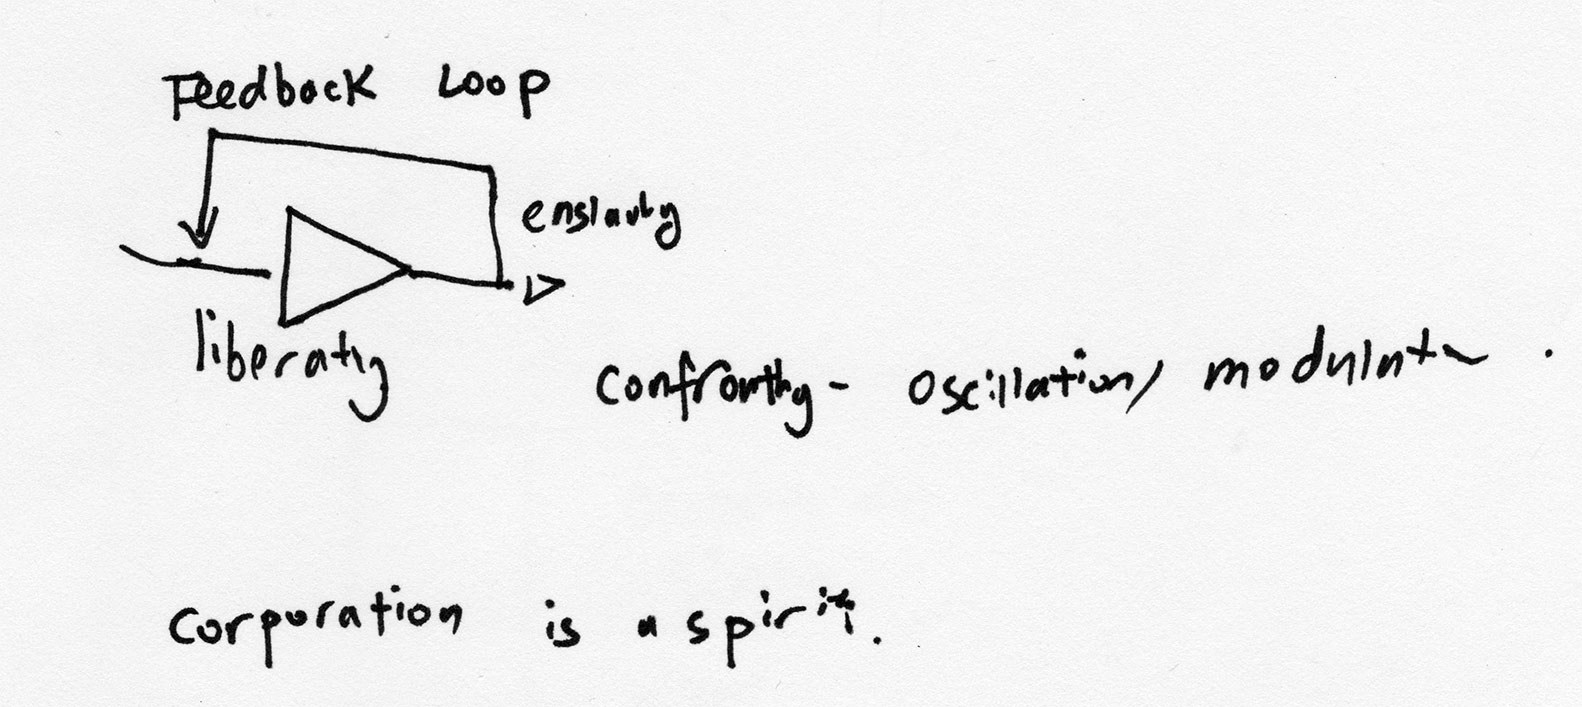 Feedback Loop
enslaving
liberating
Confronting - oscillation/ modulation.
Corporation is a spirit.